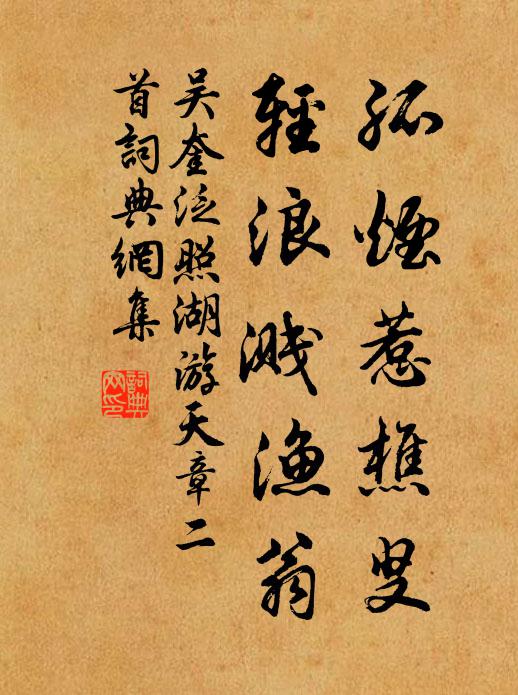 孤煙惹樵叟
輕浪濺漁翁
吴奎泛照湖游天章二
首詞典網集
詞典
网印